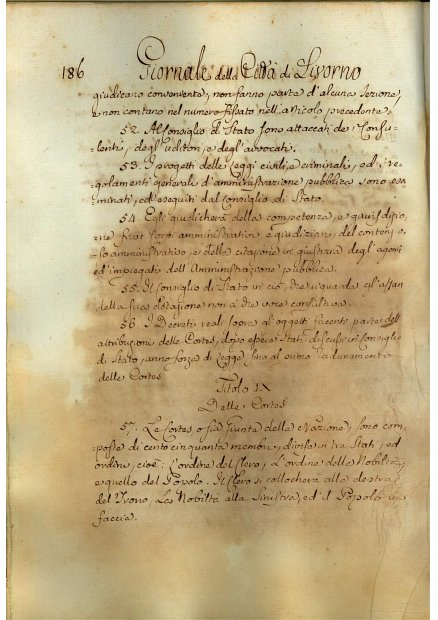 186 Giornale della Città di Livorno
giudicano conveniente, non fanno parte d'alcuna Sezione,
e non contano nel numero fissato nell'articolo precedente.
52. Al Consiglio di Stato sono attaccati de' Consu-
lenti, degl'uditori, e degl'advocati.
53. I progetti delle Leggi civili, e criminali, ed i re-
golamenti generali d'amministrazione pubblica sono esa-
minati, ed eseguiti dal Consiglio di Stato.
54. Egli giudicherà della competenza, e
fra i Corpi amministrativi e giudiziari, del contenzio-
so amministrativo, e della citazione in giustizia degl'agenti
ed impiegati dell'Amministrazione pubblica.
55. Il Consiglio di Stato in ciò, che riguarda
della sua dotazione non à che voce consultiva.
56. I Decreti reali sopra gl'oggetti facenti parte dell'
attribuzioni delle Cortes, dopo essere stati discussi in Consiglio
di Stato, anno forza di Legge fino al primo adunamento
delle Cortes
Titolo IX
Delle Cortes
57. Le Cortes o sia Giunta della Nazione, sono com-
poste di cento cinquanta membri, divise in tre Stati, ed
ordini, cioè: l'ordine del Clero, L'ordine della Nobiltà,
e quello del Popolo. Il Clero si collocherà alla destra
del Trono, La Nobiltà alla Sinistra, ed il Popolo in
faccia.